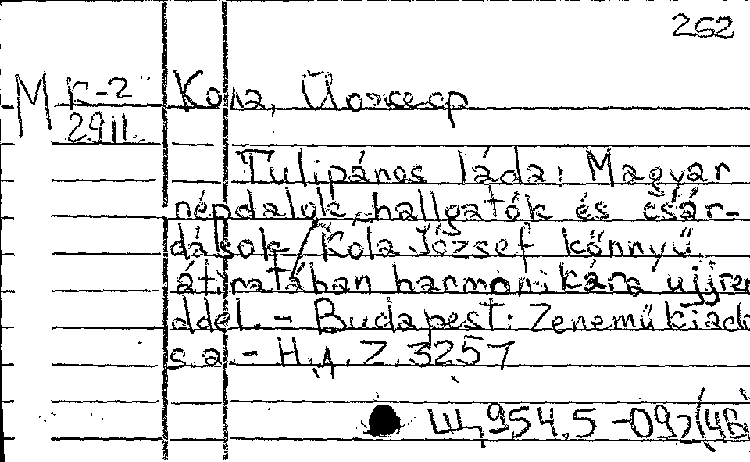 262
М К-2
2911
Кола, Йожеф
Tulipános láda: Magyar
népdalok, hallgatók és csár-
dások / Kola József könnyű
átiratában harmonikára ujjren
ddel. - Budapest: Zeneműkiadó
s.a. - H.A.Z. 3257
Щ954.5-092(4В)